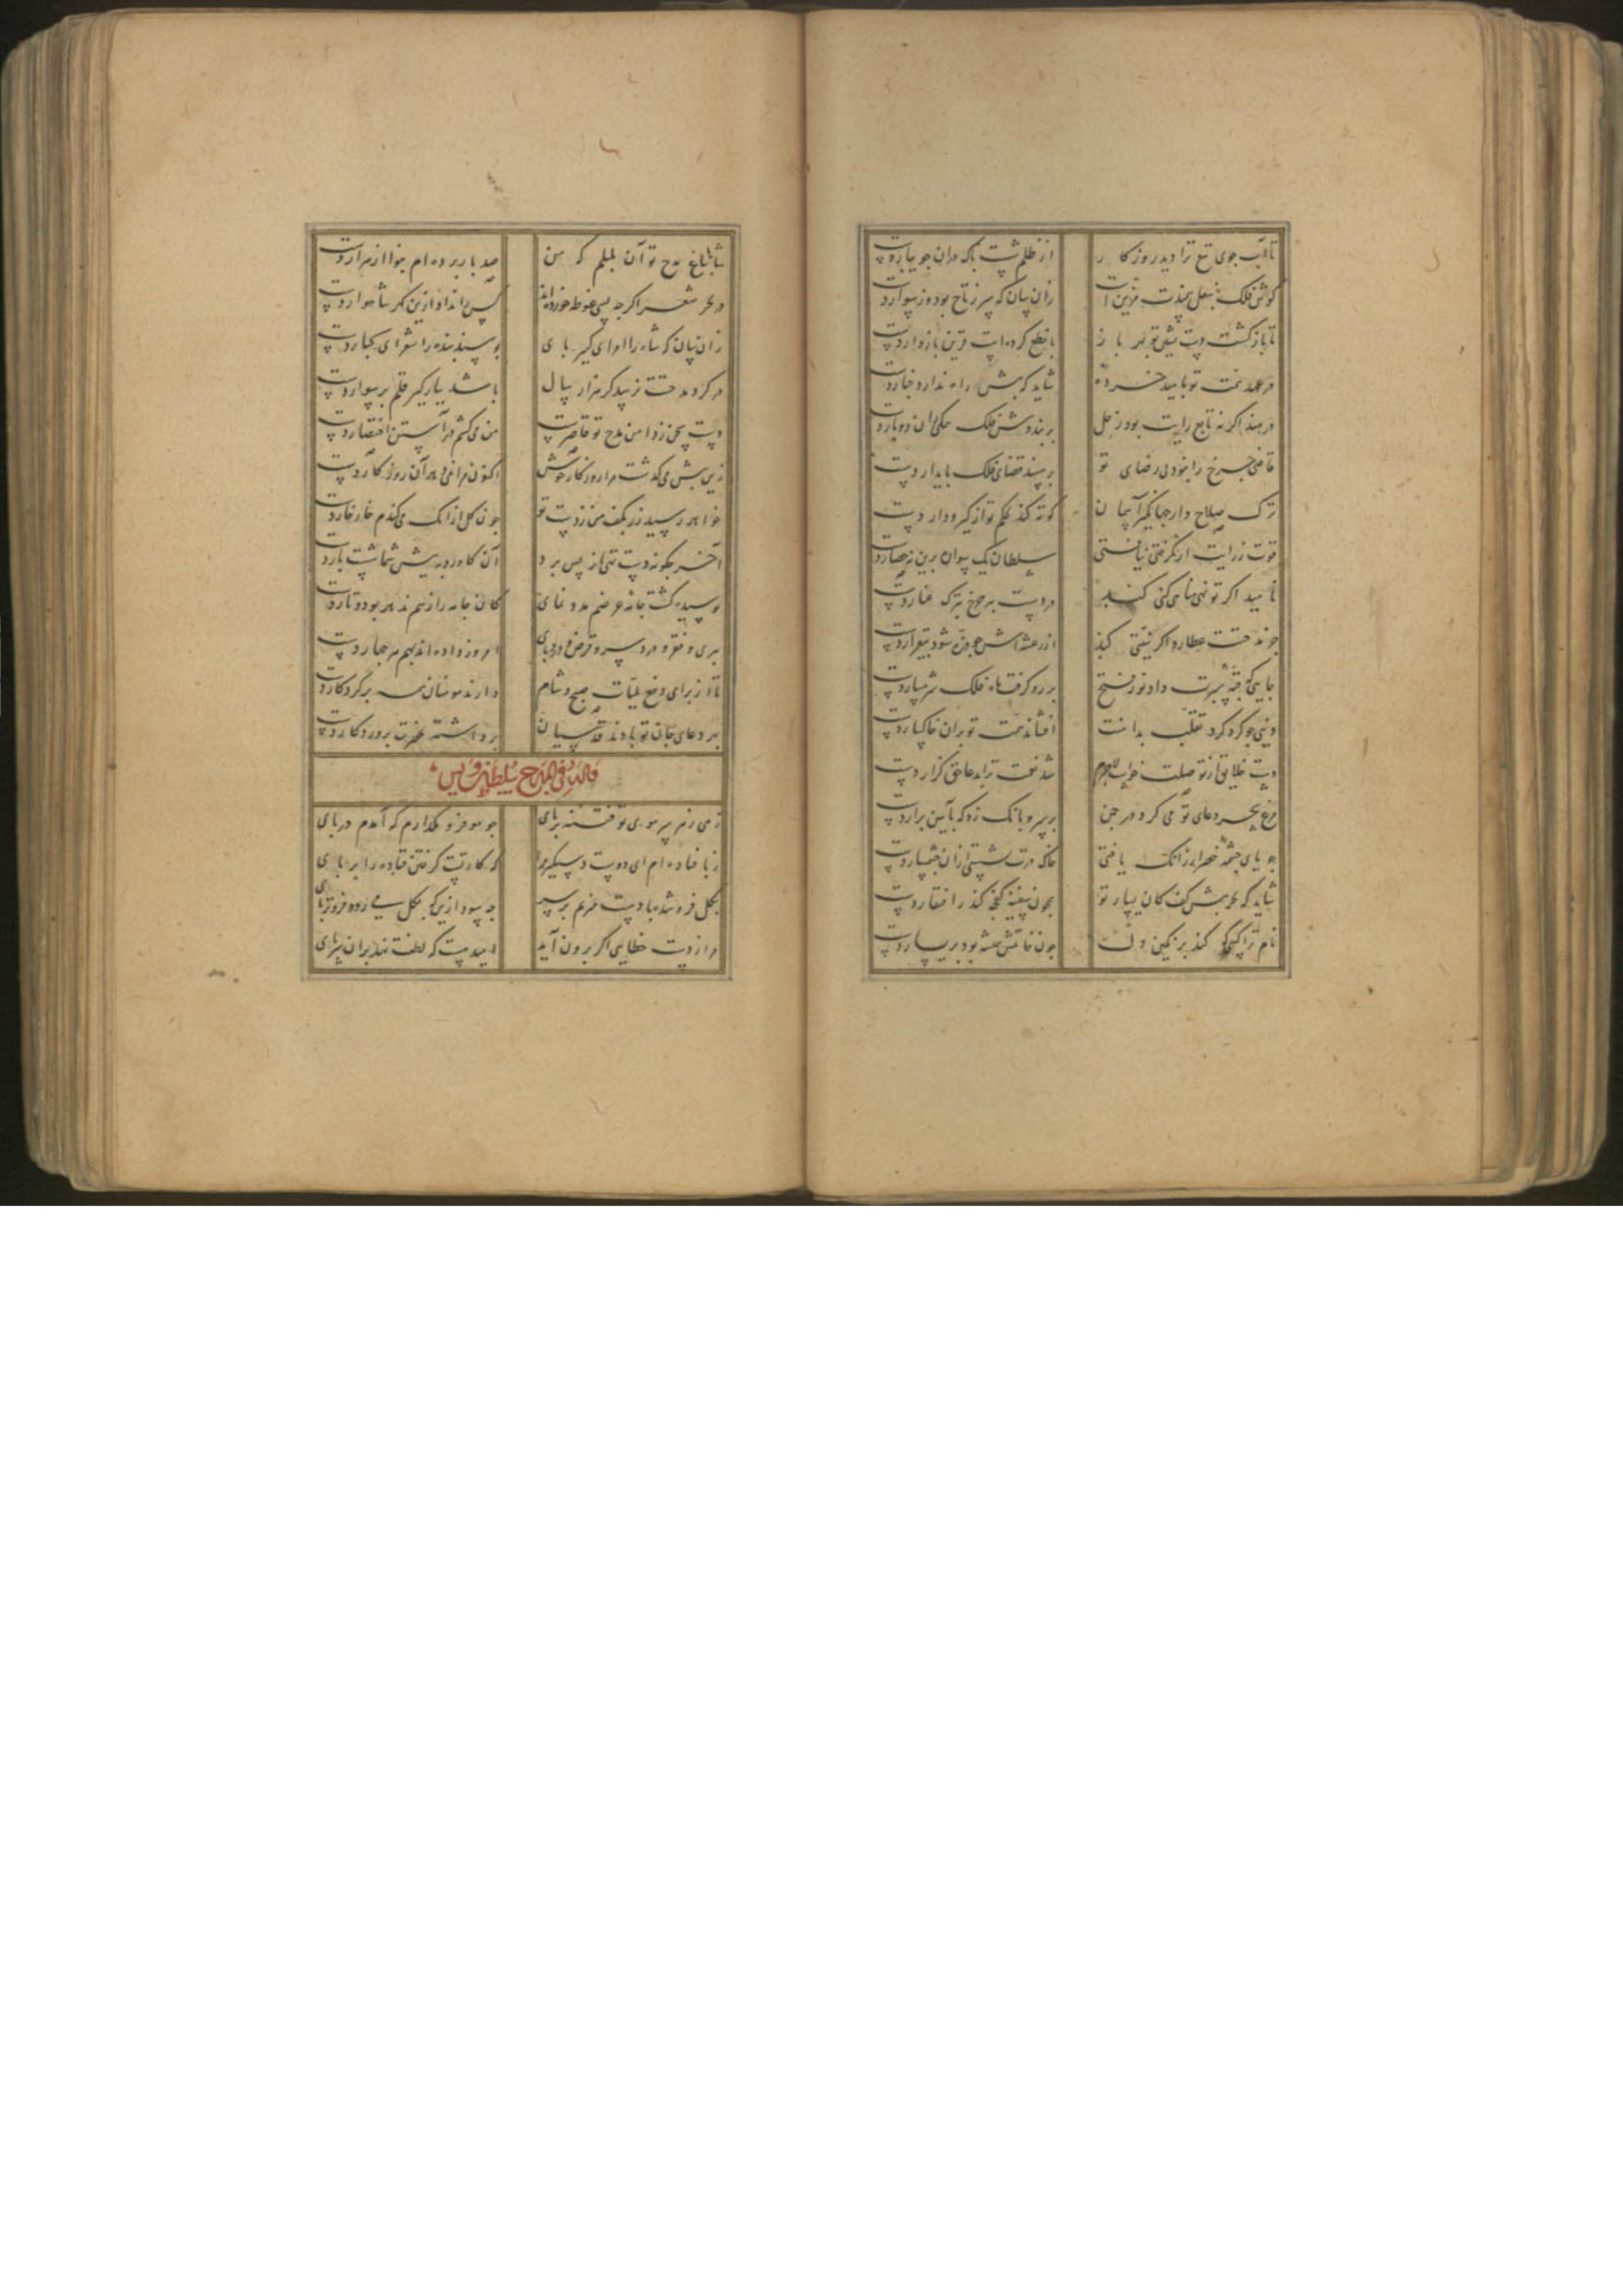 تا آب جوی تیغ ترا دید روزکار
از ظلم شست پاک دران جویبار دست
کوش فلک بنعل سمندت مزین است
زان سان که سر ز تاج بود وز سوار دست
تا باز کشت دست بنیلی تو بهر باز
با نطع کرده است قرین باز دار دست
در عهد تو بامید خرده
شاید که بیش راه ندارد خیار دست
در بند اکر نه تابع رایت بود زحل
بر بنددش فلک دوبار دست
قاضی چرخ را بخود بی رضای تو
بر مسند قضای فلک پایدار دست
ترک صلاح دار جهانکیر آسمان
کوته کند بحکم تو از کیر و دار دست
قوت ز رایت ار نکرفتی نیافتی
سلطان یک سواره برین نه حصار دست
ناهید اکر تو نهی مناهی کنی کند
در دست برجخ بترک عقار دست
خواند حسنت عطارد اکر نیتی کند
از رعشه اش چو شود بیقرار دست
جایی که قبه سپرت داد نور فتح
بر رو کرفت ماه فلک شرمسار دست
دینی چو کرد کرد تقلب بدامنت
افشاند همت تو بران خاکسار دست
دست خلایق از تو صلت خواست لاجرم
شد نعمت ترا بدعا حق کزار دست
مرغ سحر دعای تو می کرد در چمن
بر سرو بانک زد که بآمین برار دست
جویای چشمه خضر ار زانک یافتی
خاک درت شستی ازان چشمسار دست
شاید که بحر پیش کف کان یسار تو
همچون سفینه کنجه کند ز افتقار دست
نام ترا کسی کو کند بر نکین دل
چون خاتمش همیشه بود بر یسار دست
شاها بباغ مدح تو آن بلبلم که من
صد بار برده ام بنوا از هزار دست
در بحر شعر اکرچه بسی غوطه خورده اند
کس را نداد ازین کهر شاهوار دست
زان سان که شاه را امرای کبیر پای
بوسند بنده را شعرای کبار دست
در کرد مدحتت نرسد کر هزار سال
باشد بپای کیر قلم بر سوار دست
دست سخن ز دامن مدح تو قاصرست
من می کشم در آستین اختصار دست
زین پیش می کذشت مرا روزکار خوش
اکنون مرا نمی دهد آن روزکار دست
خواهد رسید زر بکف من ز دست تو
چون کل ازانک می کندم خار خار دست
آخر چکونه دست تهی باز پس برد
آن کاه رو به پیش شما شست بار دست
پوسیده کشت جامه عرضم مدد نمای
کان جامه را ز هم ندهد پود و تار دست
پیری و فقر و درد سر و قرض و درد پای
امروز داده اند بهم هر چهار دست
تا از برای دفع بلیات صبح و شام
دارند مومنان همه بر کردکار دست
بهر دعای جان تو بادند قدسیان
برداشته بحضرت پروردکار دست
قال فی المدح سلطان اویس
زهی ز هر سر موی تو فتنه برپای
چو مو فرو مکذارم که آمدم در پای
ز پا فتاده ام ای دوست دستکیر مرا
که کار تست کرفتن فتاده را بر پای
بکل فرو شد مبادست میزنم بر سر
چه سود ازین که بکل سی زده فرو تر پای
مرا ز دست خطایی اکر برون آید
امید هست که لطفت نهد بران سر پای